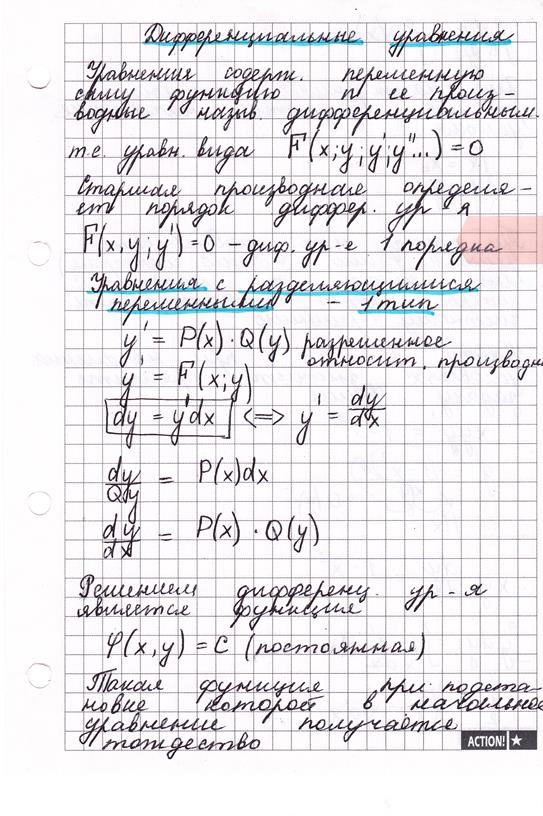 Дифференциальные уравнения
Уравнения содерж. переменную
саму функцию и ее произ-
водные назыв. дифференциальным.
т.е. уравн. вида F(x; y; y'; y''...) = 0
Старшая производная определя-
ет порядок диффер. ур-я
F(x, y; y') = 0 – диф. ур-е 1 порядка
Уравнения с разделяющимися
переменными – 1 тип
y' = P(x) · Q(y) разрешенное
относит. производн
y' = F(x; y)
dy = y'dx <=> y' = dy/dx
dy/Qy = P(x)dx
dy/dx = P(x) · Q(y)
Решением дифференц. ур-я
является функция
φ(x, y) = C (постоянная)
Такая функция при подста-
новке которой в начальное
уравнение получаете
тождество
ACTION!